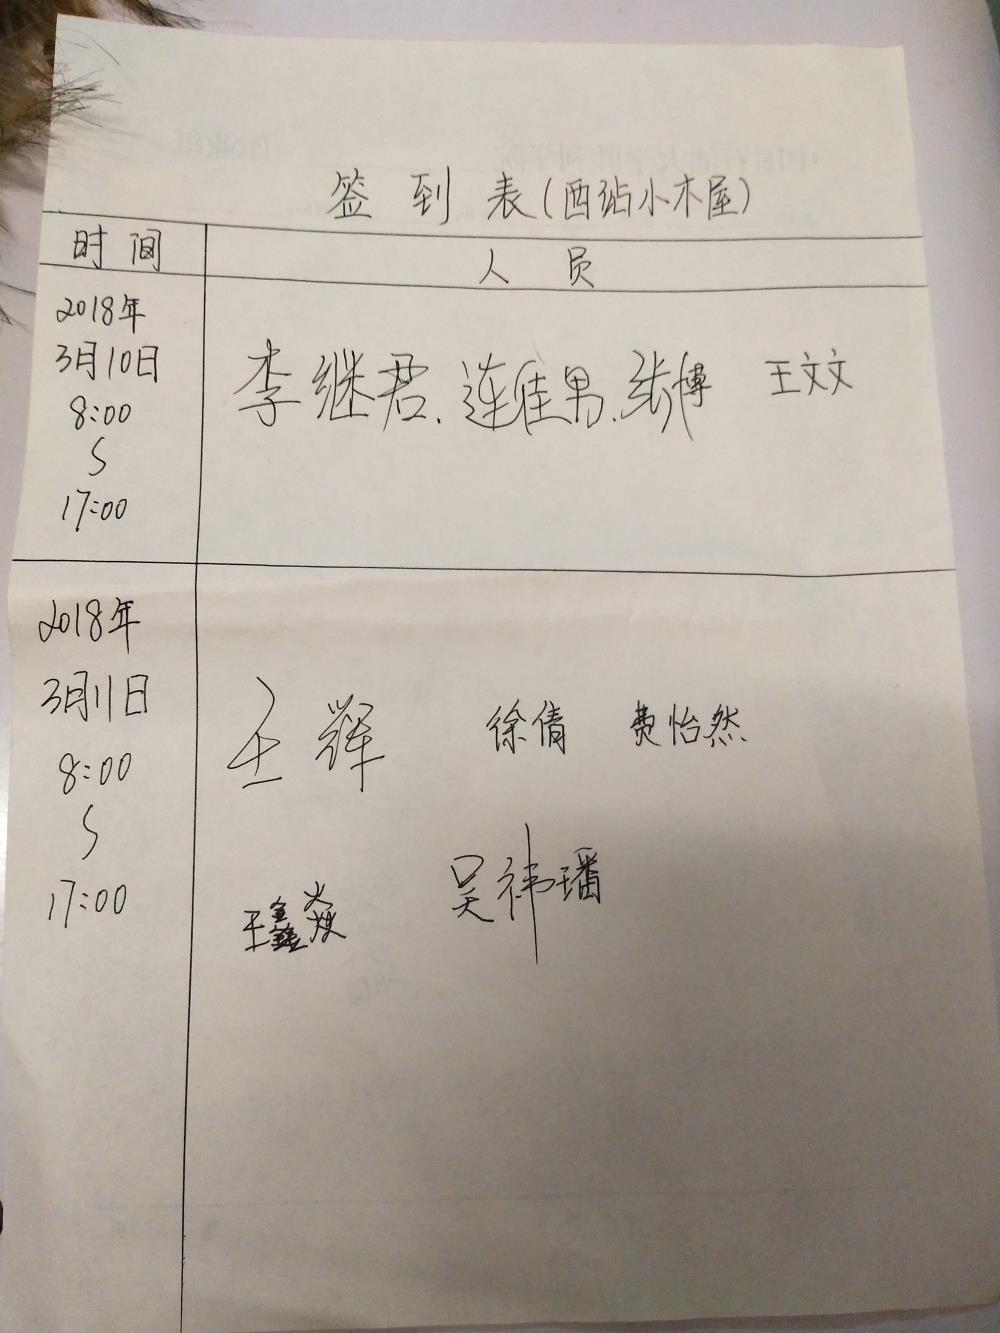 签 到 表(西站小木屋)
时 间
人 员
2018年
3月10日
8:00
~
17:00
李继君.连佳男.张博 王文文
2018年
3月11日
8:00
~
17:00
王辉 徐倩 费怡然
王鑫焱 吴祎璠